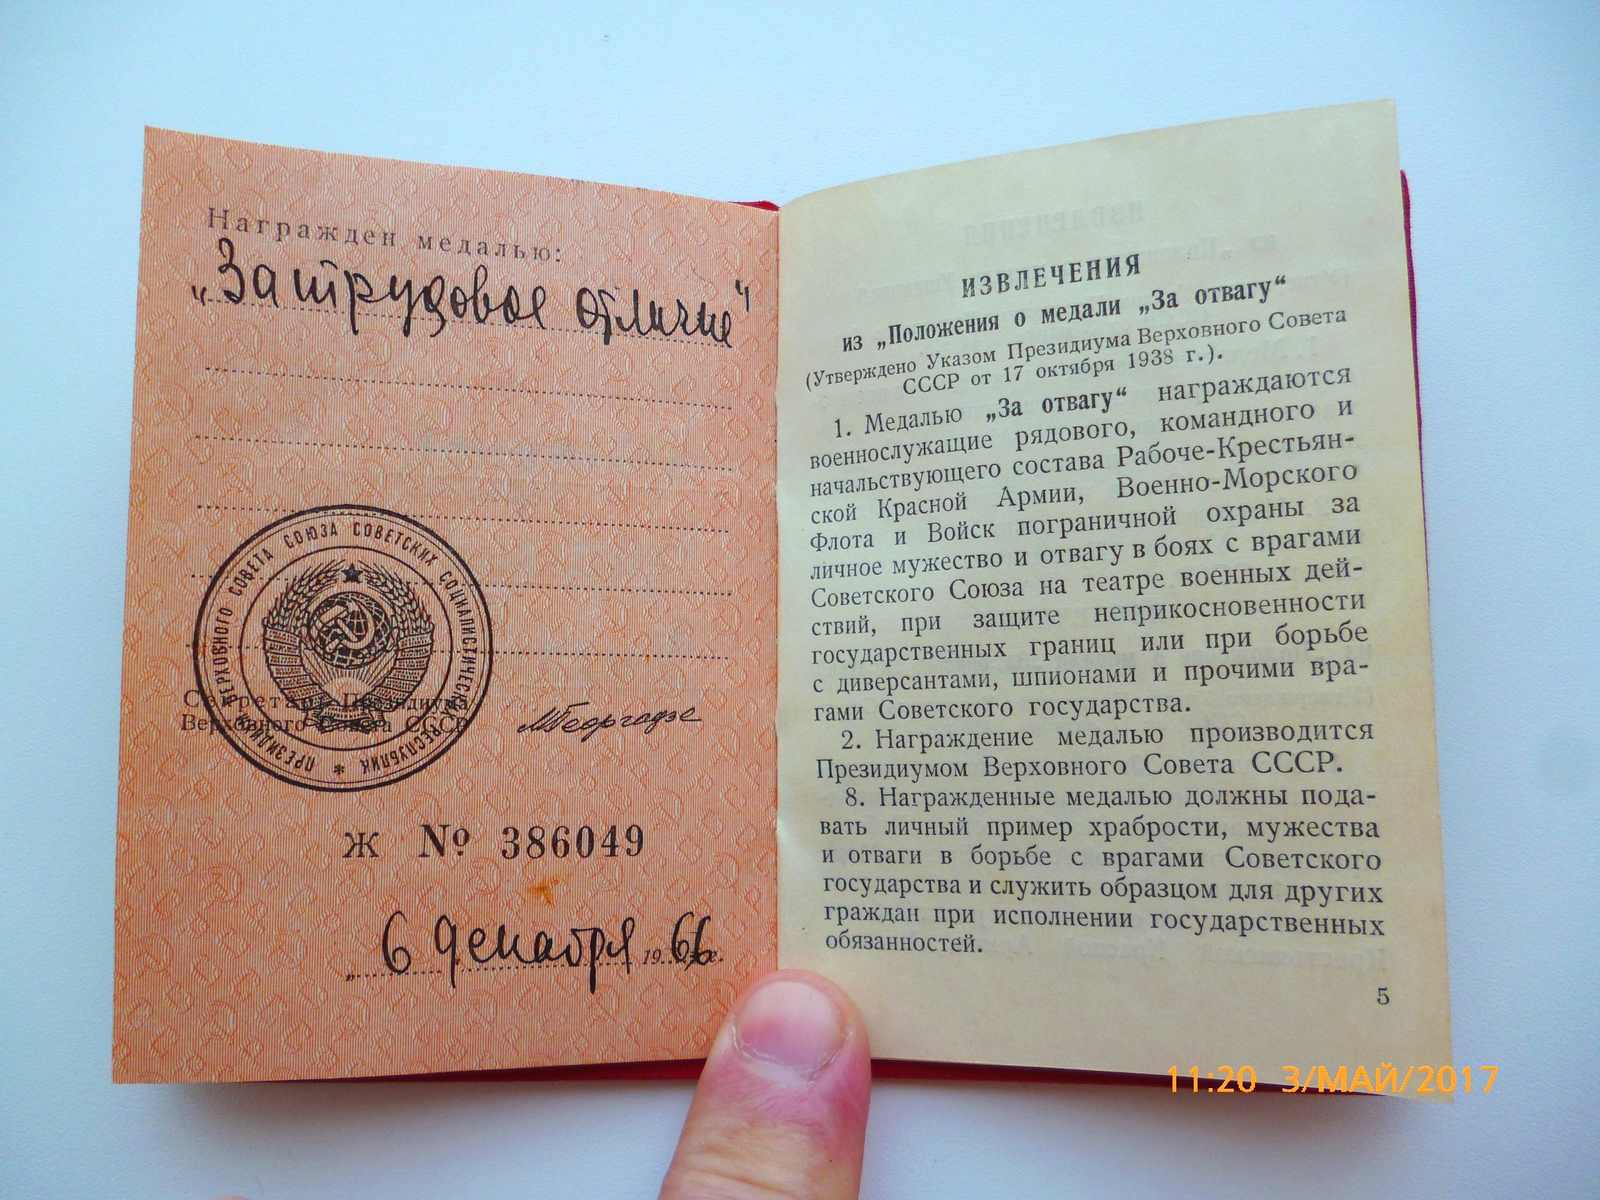 Награжден медалью:
„За трудовое отличие"
ПРЕЗИДИУМ ВЕРХОВНОГО СОВЕТА СОЮЗА СОВЕТСКИХ СОЦИАЛИСТИЧЕСКИХ РЕСПУБЛИК *
Секретарь Президиума
Верховного Совета СССР
МГеоргадзе
Ж № 386049
„6 декабря 1966г.
ИЗВЛЕЧЕНИЯ
из „Положения о медали „За отвагу“
(Утверждено Указом Президиума Верховного Совета
СССР от 17 октября 1938 г.).
1. Медалью „За отвагу“ награждаются
военнослужащие рядового, командного и
начальствующего состава Рабоче-Крестьян-
ской Красной Армии, Военно-Морского
Флота и Войск пограничной охраны за
личное мужество и отвагу в боях с врагами
Советского Союза на театре военных дей-
ствий, при защите неприкосновенности
государственных границ или при борьбе
с диверсантами, шпионами и прочими вра-
гами Советского государства.
2. Награждение медалью производится
Президиумом Верховного Совета СССР.
8. Награжденные медалью должны пода-
вать личный пример храбрости, мужества
и отваги в борьбе с врагами Советского
государства и служить образцом для других
граждан при исполнении государственных
обязанностей.
5
11:20 3/МАЙ/2017